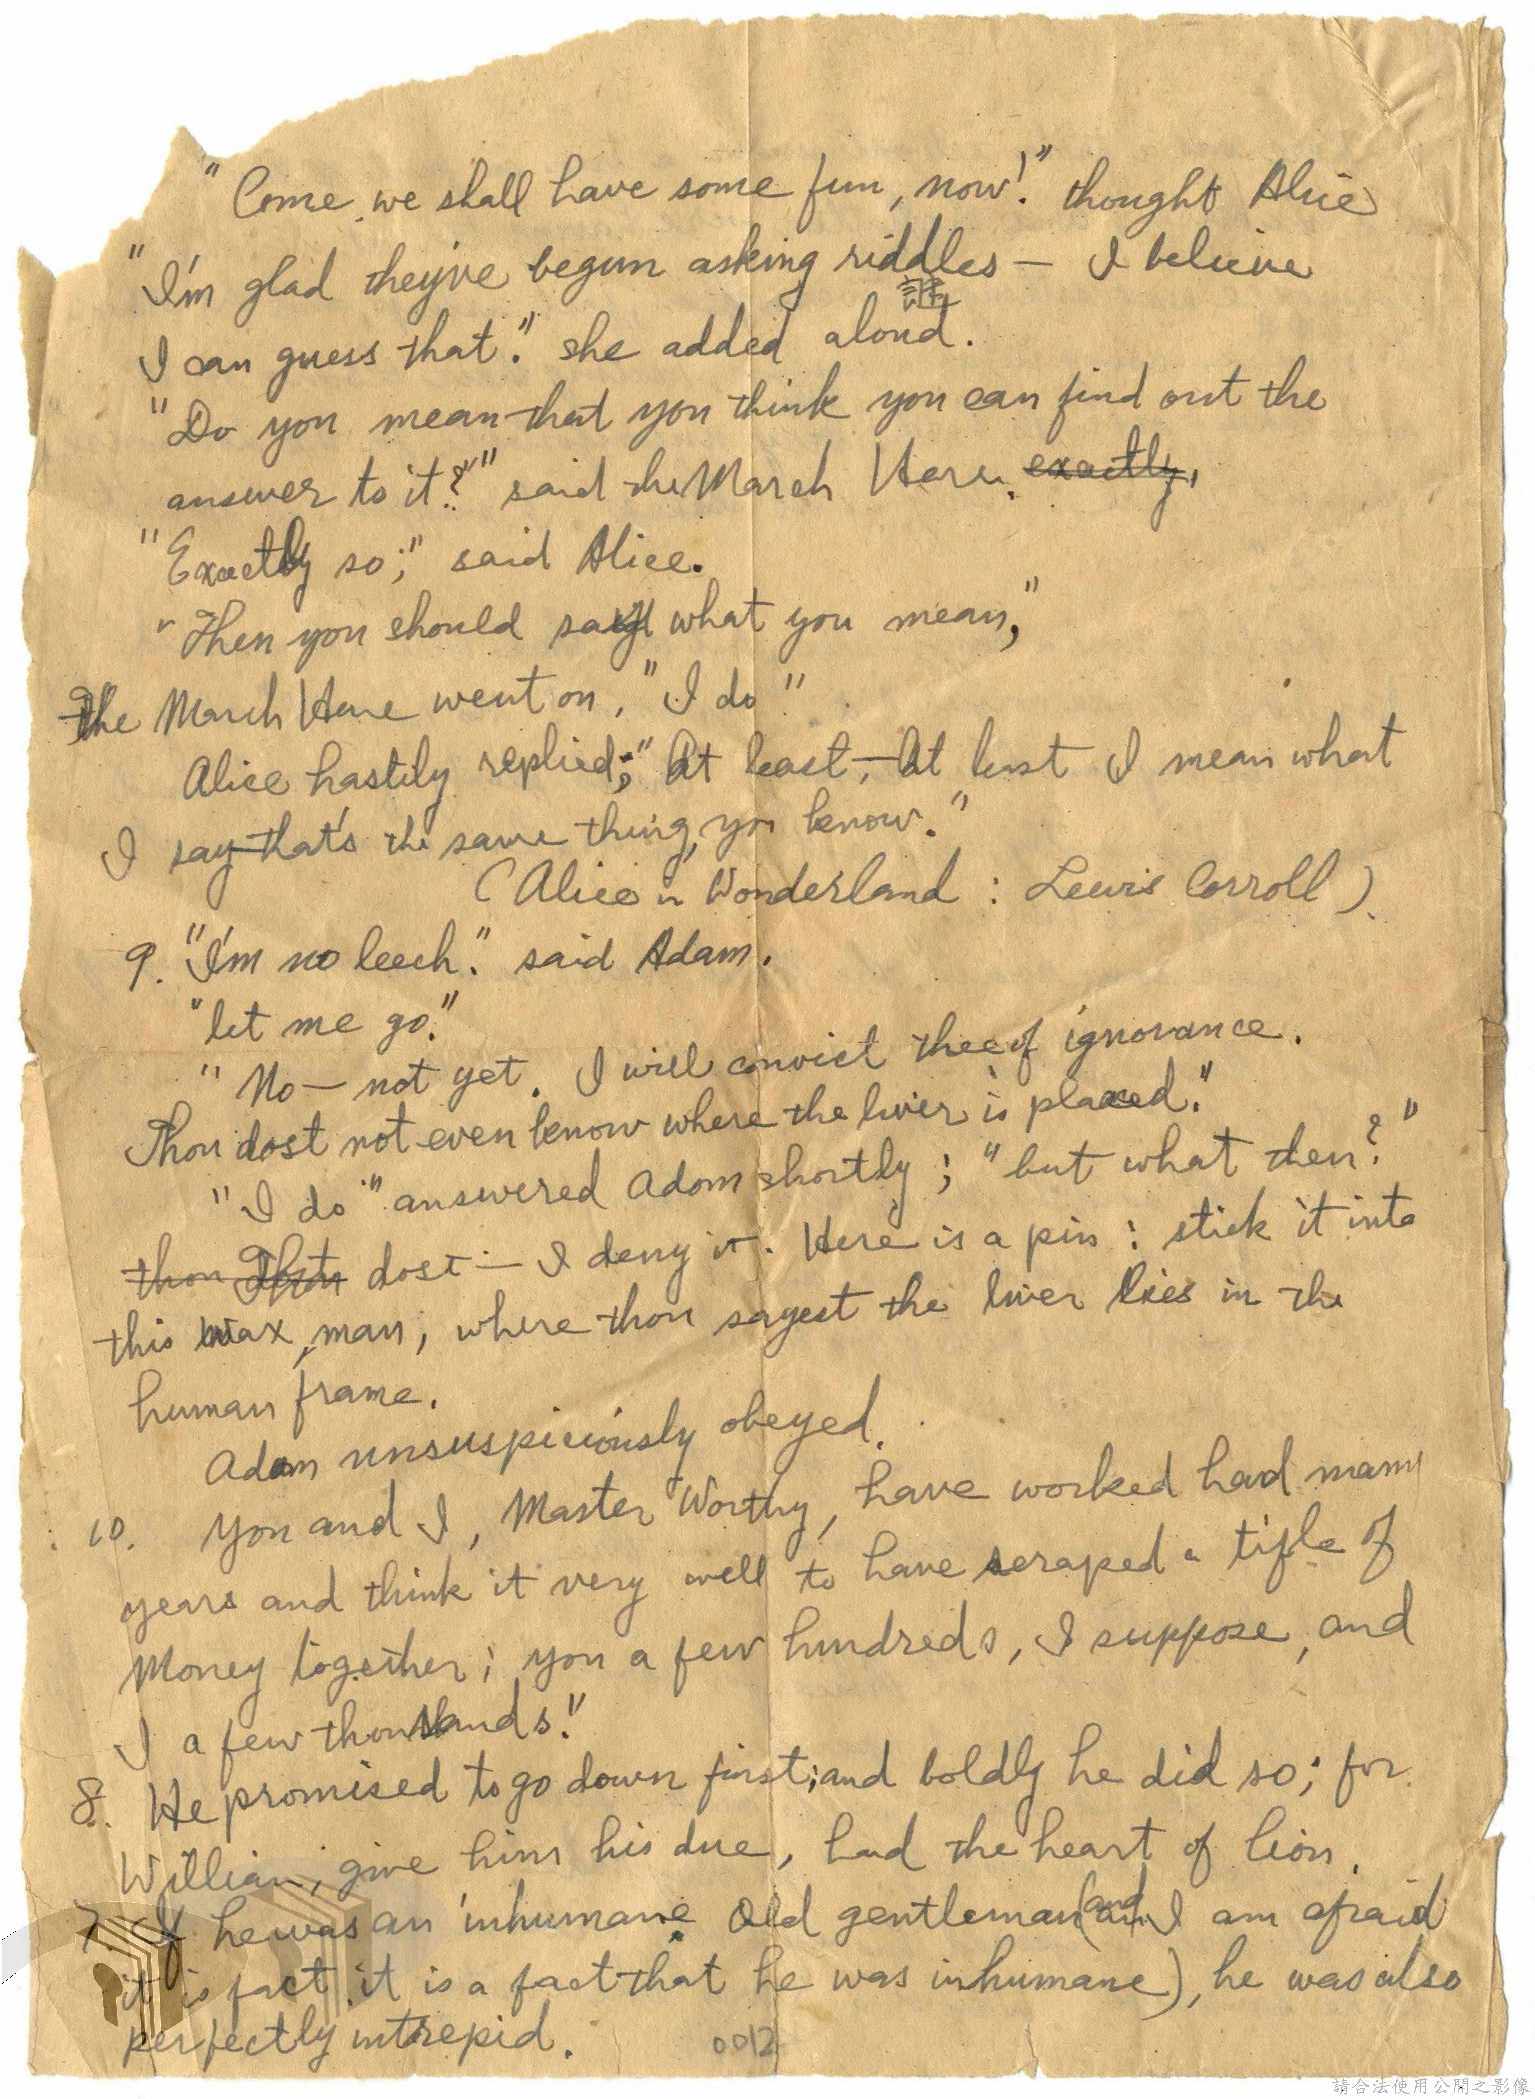 "Come, we shall have some fun, now!" thought Alice
"I'm glad they've begun asking riddles — I believe
I can guess that." she added aloud.
"Do you mean that you think you can find out the
answer to it?" said the March Hare. exactly,
"Exactly so," said Alice.
"Then you should say what you mean,"
the March Hare went on, "I do"
Alice hastily replied; "At least, — At least I mean what
I say — that's the same thing, you know."
(Alice in Wonderland : Lewis Carroll).
9. "I'm no leech." said Adam.
"let me go."
"No — not yet. I will convict thee of ignorance.
Thou dost not even know where the liver is placed."
"I do" answered Adam shortly ; "but what then?"
thou Thou dost — I deny it. Here is a pin : stick it into
this wax, man, where thou sayest the liver lies in the
human frame.
Adam unsuspiciously obeyed.
10. You and I, Master Worthy, have worked had many
years and think it very well to have scraped a tifle of
Money together; you a few hundreds, I suppose, and
I a few thousands."
8. He promised to go down first; and boldly he did so; for
William, give him his due, had the heart of lion.
7. If he was an inhumane old gentleman (and I am afraid
it is fact it is a fact that he was inhumane), he was also
perfectly intrepid.
0012
請合法使用公開之影像